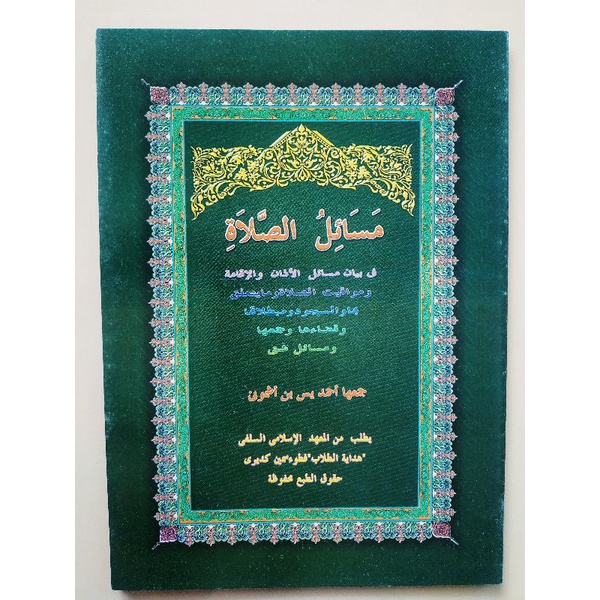 مَسَائِلُ الصَّلَاةِ
فى بيان مسائل الأذان والإقامة
ومواقيت الصلاة ومايتعلق
بها والسجود ومبطلاتها
وقضاءها وجمعها
ومسائل شتى
جمعها أحمد يس بن أسمونى
يطلب من المعهد الإسلامى السلفى
"هداية الطلاب" فطوء كديرى
حقوق الطبع محفوظة